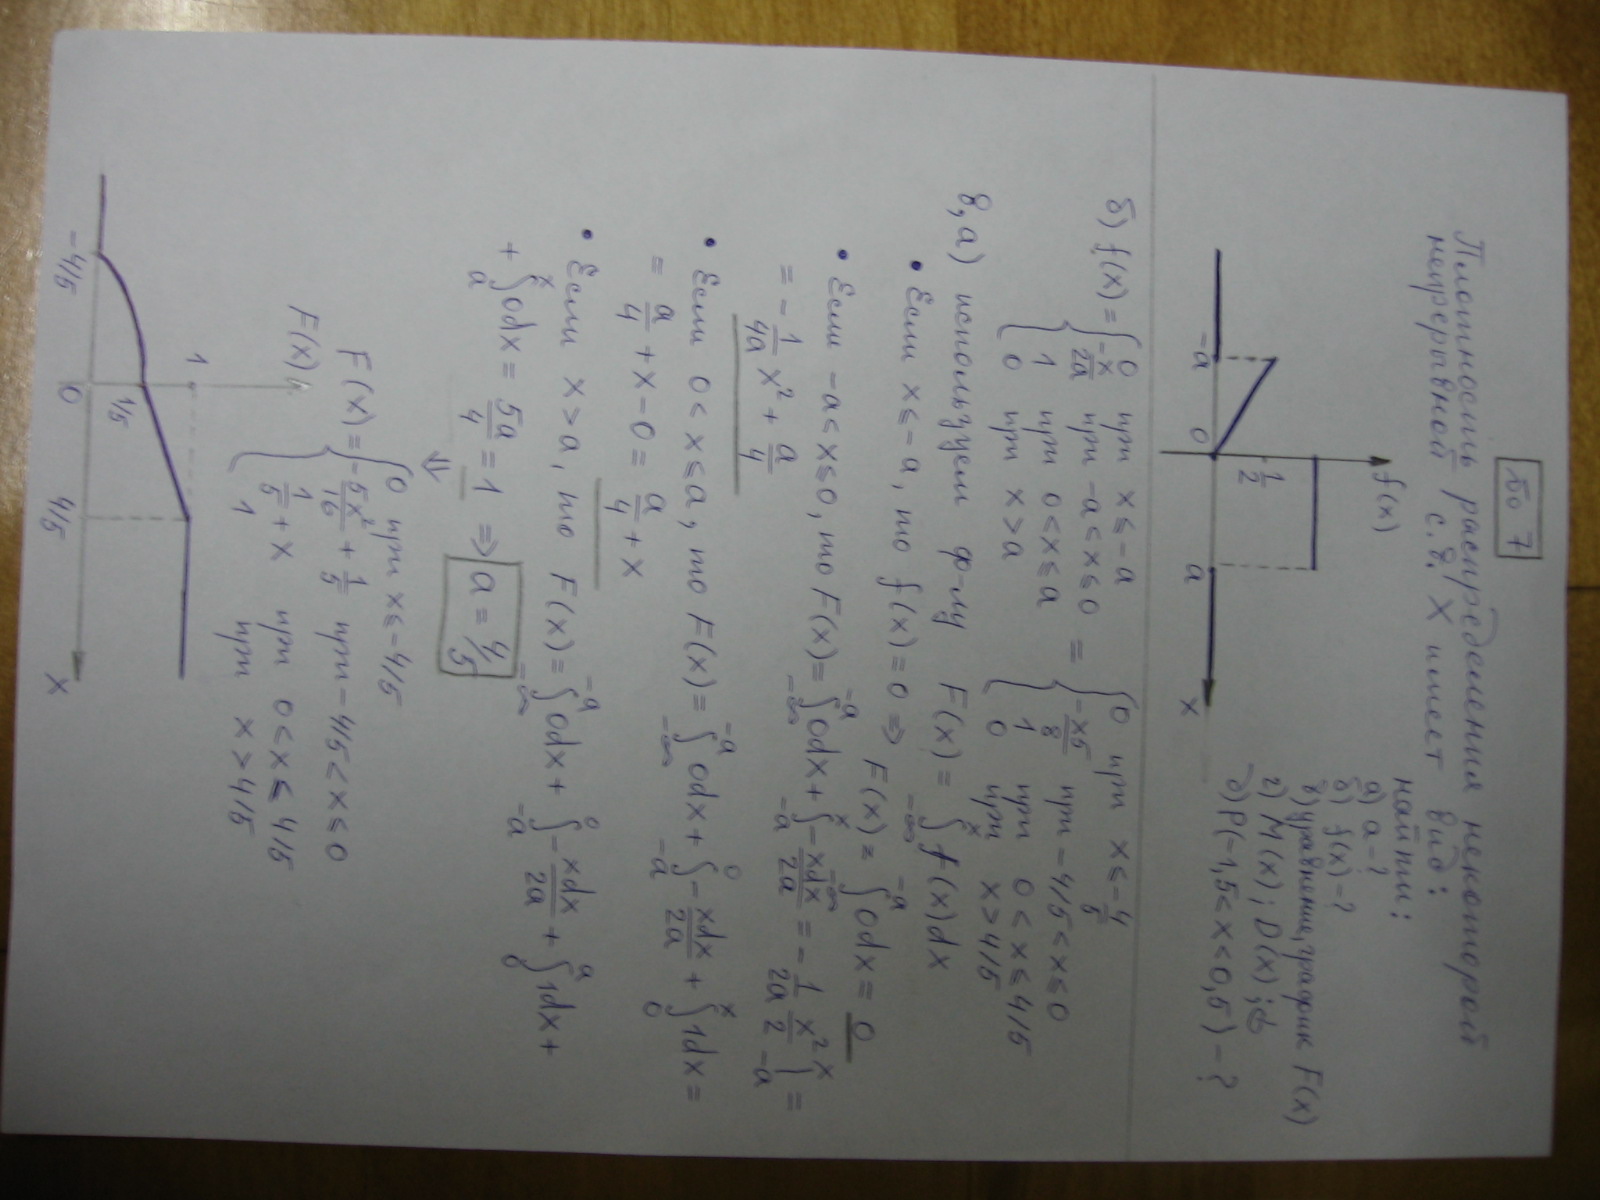 БО 7
Плотность распределения некоторой
непрерывной с.в. X имеет вид:
f(x)
1/2
-a 0 a x
найти:
а) a-?
б) f(x)-?
в) уравнени, график F(x)
г) M(x); D(x); σ
д) P(-1,5<x<0,5)-?
б) f(x) = { 0 при x ≤ -a = { 0 при x ≤ -4/5
-x/2a при -a < x ≤ 0 -x5/8 при -4/5 < x ≤ 0
1 при 0 < x ≤ a 1 при 0 < x ≤ 4/5
0 при x > a 0 при x > 4/5
в, а) используем ф-лу F(x) = ∫_{-∞}^{x} f(x)dx
• Если x ≤ -a, то f(x) = 0 ⇒ F(x) = ∫_{-∞}^{-a} 0dx = 0
• Если -a < x ≤ 0, то F(x) = ∫_{-∞}^{-a} 0dx + ∫_{-a}^{x} -xdx/2a = -1/2a x²/2 |_{-a}^{x} =
= -1/4a x² + a/4
• Если 0 < x ≤ a, то F(x) = ∫_{-∞}^{-a} 0dx + ∫_{-a}^{0} -xdx/2a + ∫_{0}^{x} 1dx =
= a/4 + x - 0 = a/4 + x
• Если x > a, то F(x) = ∫_{-∞}^{-a} 0dx + ∫_{-a}^{0} -xdx/2a + ∫_{0}^{a} 1dx +
+ ∫_{a}^{x} 0dx = 5a/4 = 1 ⇒ a = 4/5
⇓
F(x) = { 0 при x ≤ -4/5
-5x²/16 + 1/5 при -4/5 < x ≤ 0
1/5 + x при 0 < x ≤ 4/5
1 при x > 4/5
F(x)
1
1/5
-4/5 0 4/5 x